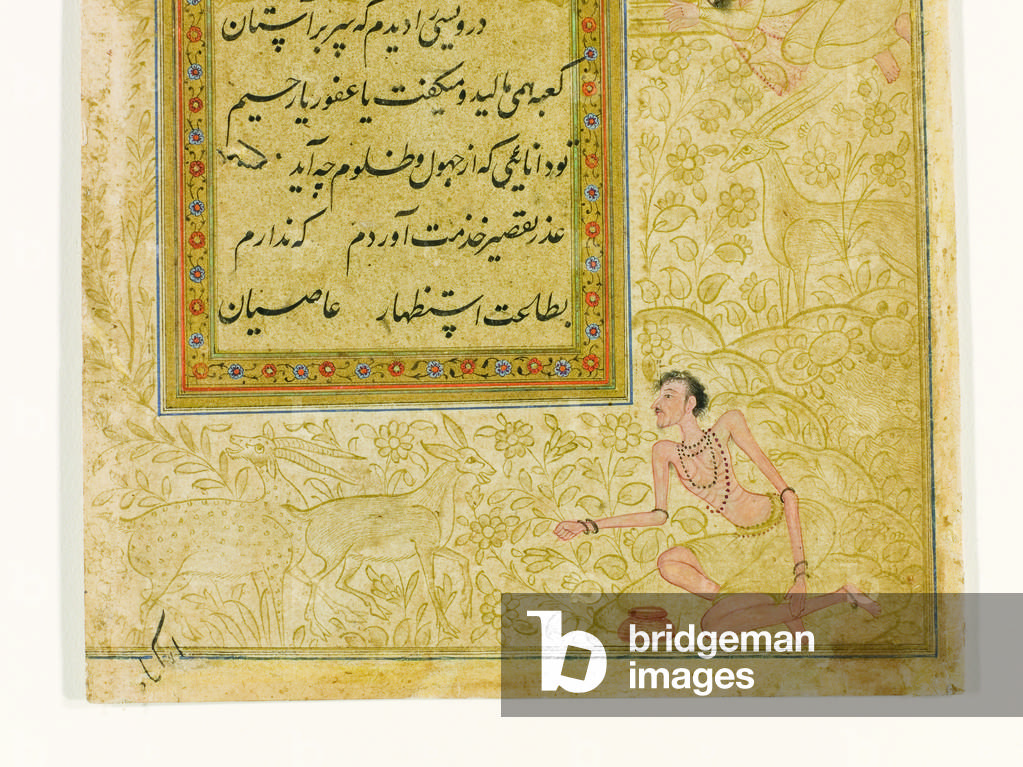 درویشی را دیدم که سر بر آستان
کعبه همی مالید و میکفت یا غفور یا رحیم
که از جهول و ظلوم چه آید
عذر تقصیر خدمت آوردم که ندارم
بطاعت استظهار عاصیان
bridgeman
images